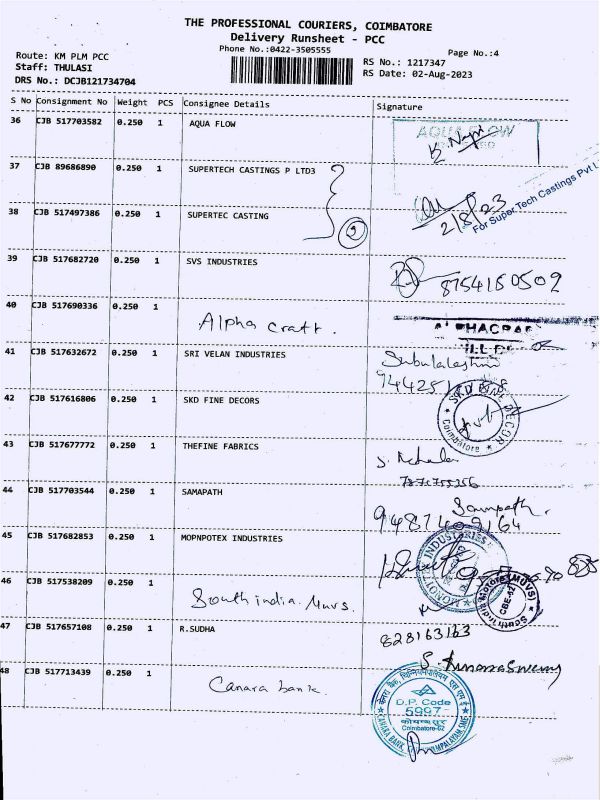 THE PROFESSIONAL COURIERS, COIMBATORE
Delivery Runsheet - PCC
Phone No.:0422-3505555
Page No.:4
Route: KM PLM PCC
Staff: THULASI
DRS No.: DCJB121734704
RS No.: 1217347
RS Date: 02-Aug-2023
S No Consignment No Weight PCS Consignee Details Signature
36 CJB 517703582 0.250 1 AQUA FLOW
AQUA FLOW
37 CJB 89686890 0.250 1 SUPERTECH CASTINGS P LTD3
2/8/23
For Super Tech Castings Pvt L
38 CJB 517497386 0.250 1 SUPERTEC CASTING
2
39 CJB 517682720 0.250 1 SVS INDUSTRIES
8754150502
40 CJB 517690336 0.250 1 Alpha craft.
41 CJB 517632672 0.250 1 SRI VELAN INDUSTRIES
42 CJB 517616806 0.250 1 SKD FINE DECORS
SKD FINE DECOR
Coimbatore
43 CJB 517677772 0.250 1 THEFINE FABRICS
44 CJB 517703544 0.250 1 SAMAPATH
Sampath.
9487409164
45 CJB 517682853 0.250 1 MOPNPOTEX INDUSTRIES
INDUSTRIES
46 CJB 517538209 0.250 1 South india. Muvs.
South India Motors (MUVS)
CBE-62
47 CJB 517657108 0.250 1 R.SUDHA
828163163
48 CJB 517713439 0.250 1 Canara bank.
D.P. Code
5997
कोयम्बत्तूर
Coimbatore-62
CANARA BANK,